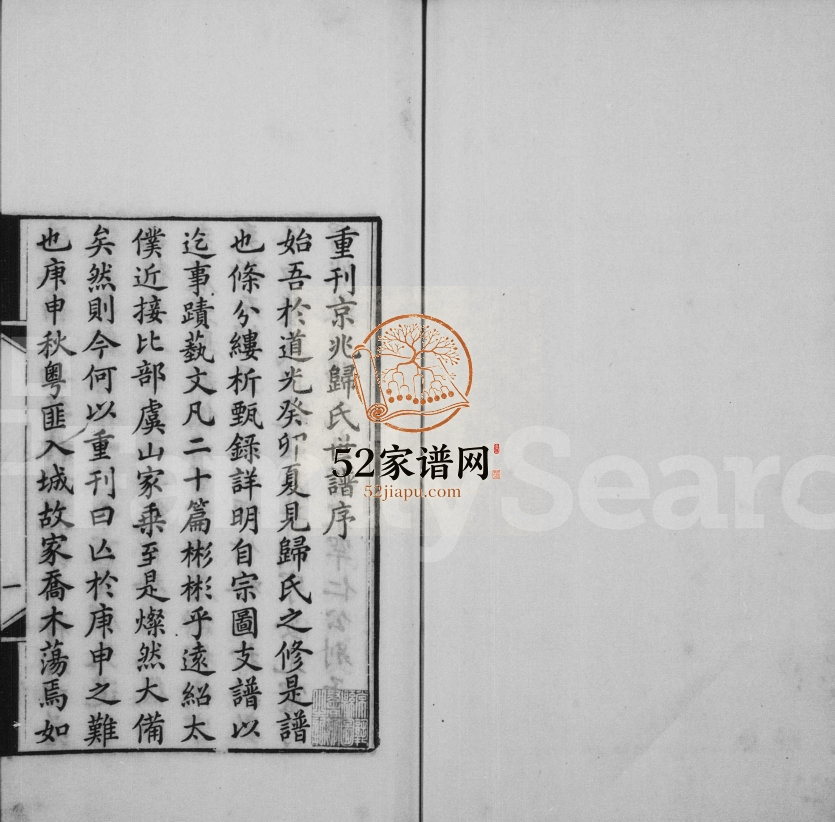 重刊京兆歸氏世譜序
始吾於道光癸卯夏見歸氏之修是譜
也條分縷析甄錄詳明自宗圖支譜以
迄事蹟藝文凡二十篇彬彬乎遠紹太
僕近接比部虞山家乘至是燦然大備
矣然則今何以重刊曰亾於庚申之難
也庚申秋粵匪入城故家喬木蕩焉如
一
52家谱网
52jiapu.com
FamilySearc